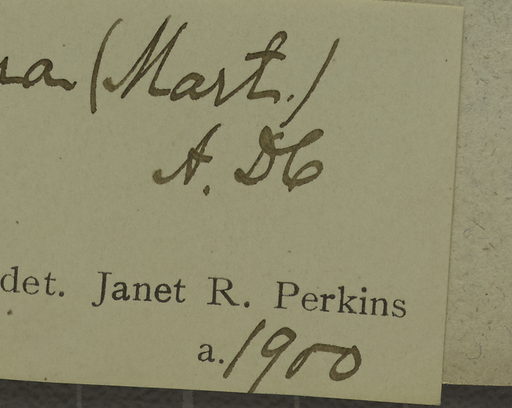 (Mart.)
A. DC
det. Janet R. Perkins
a. 1900